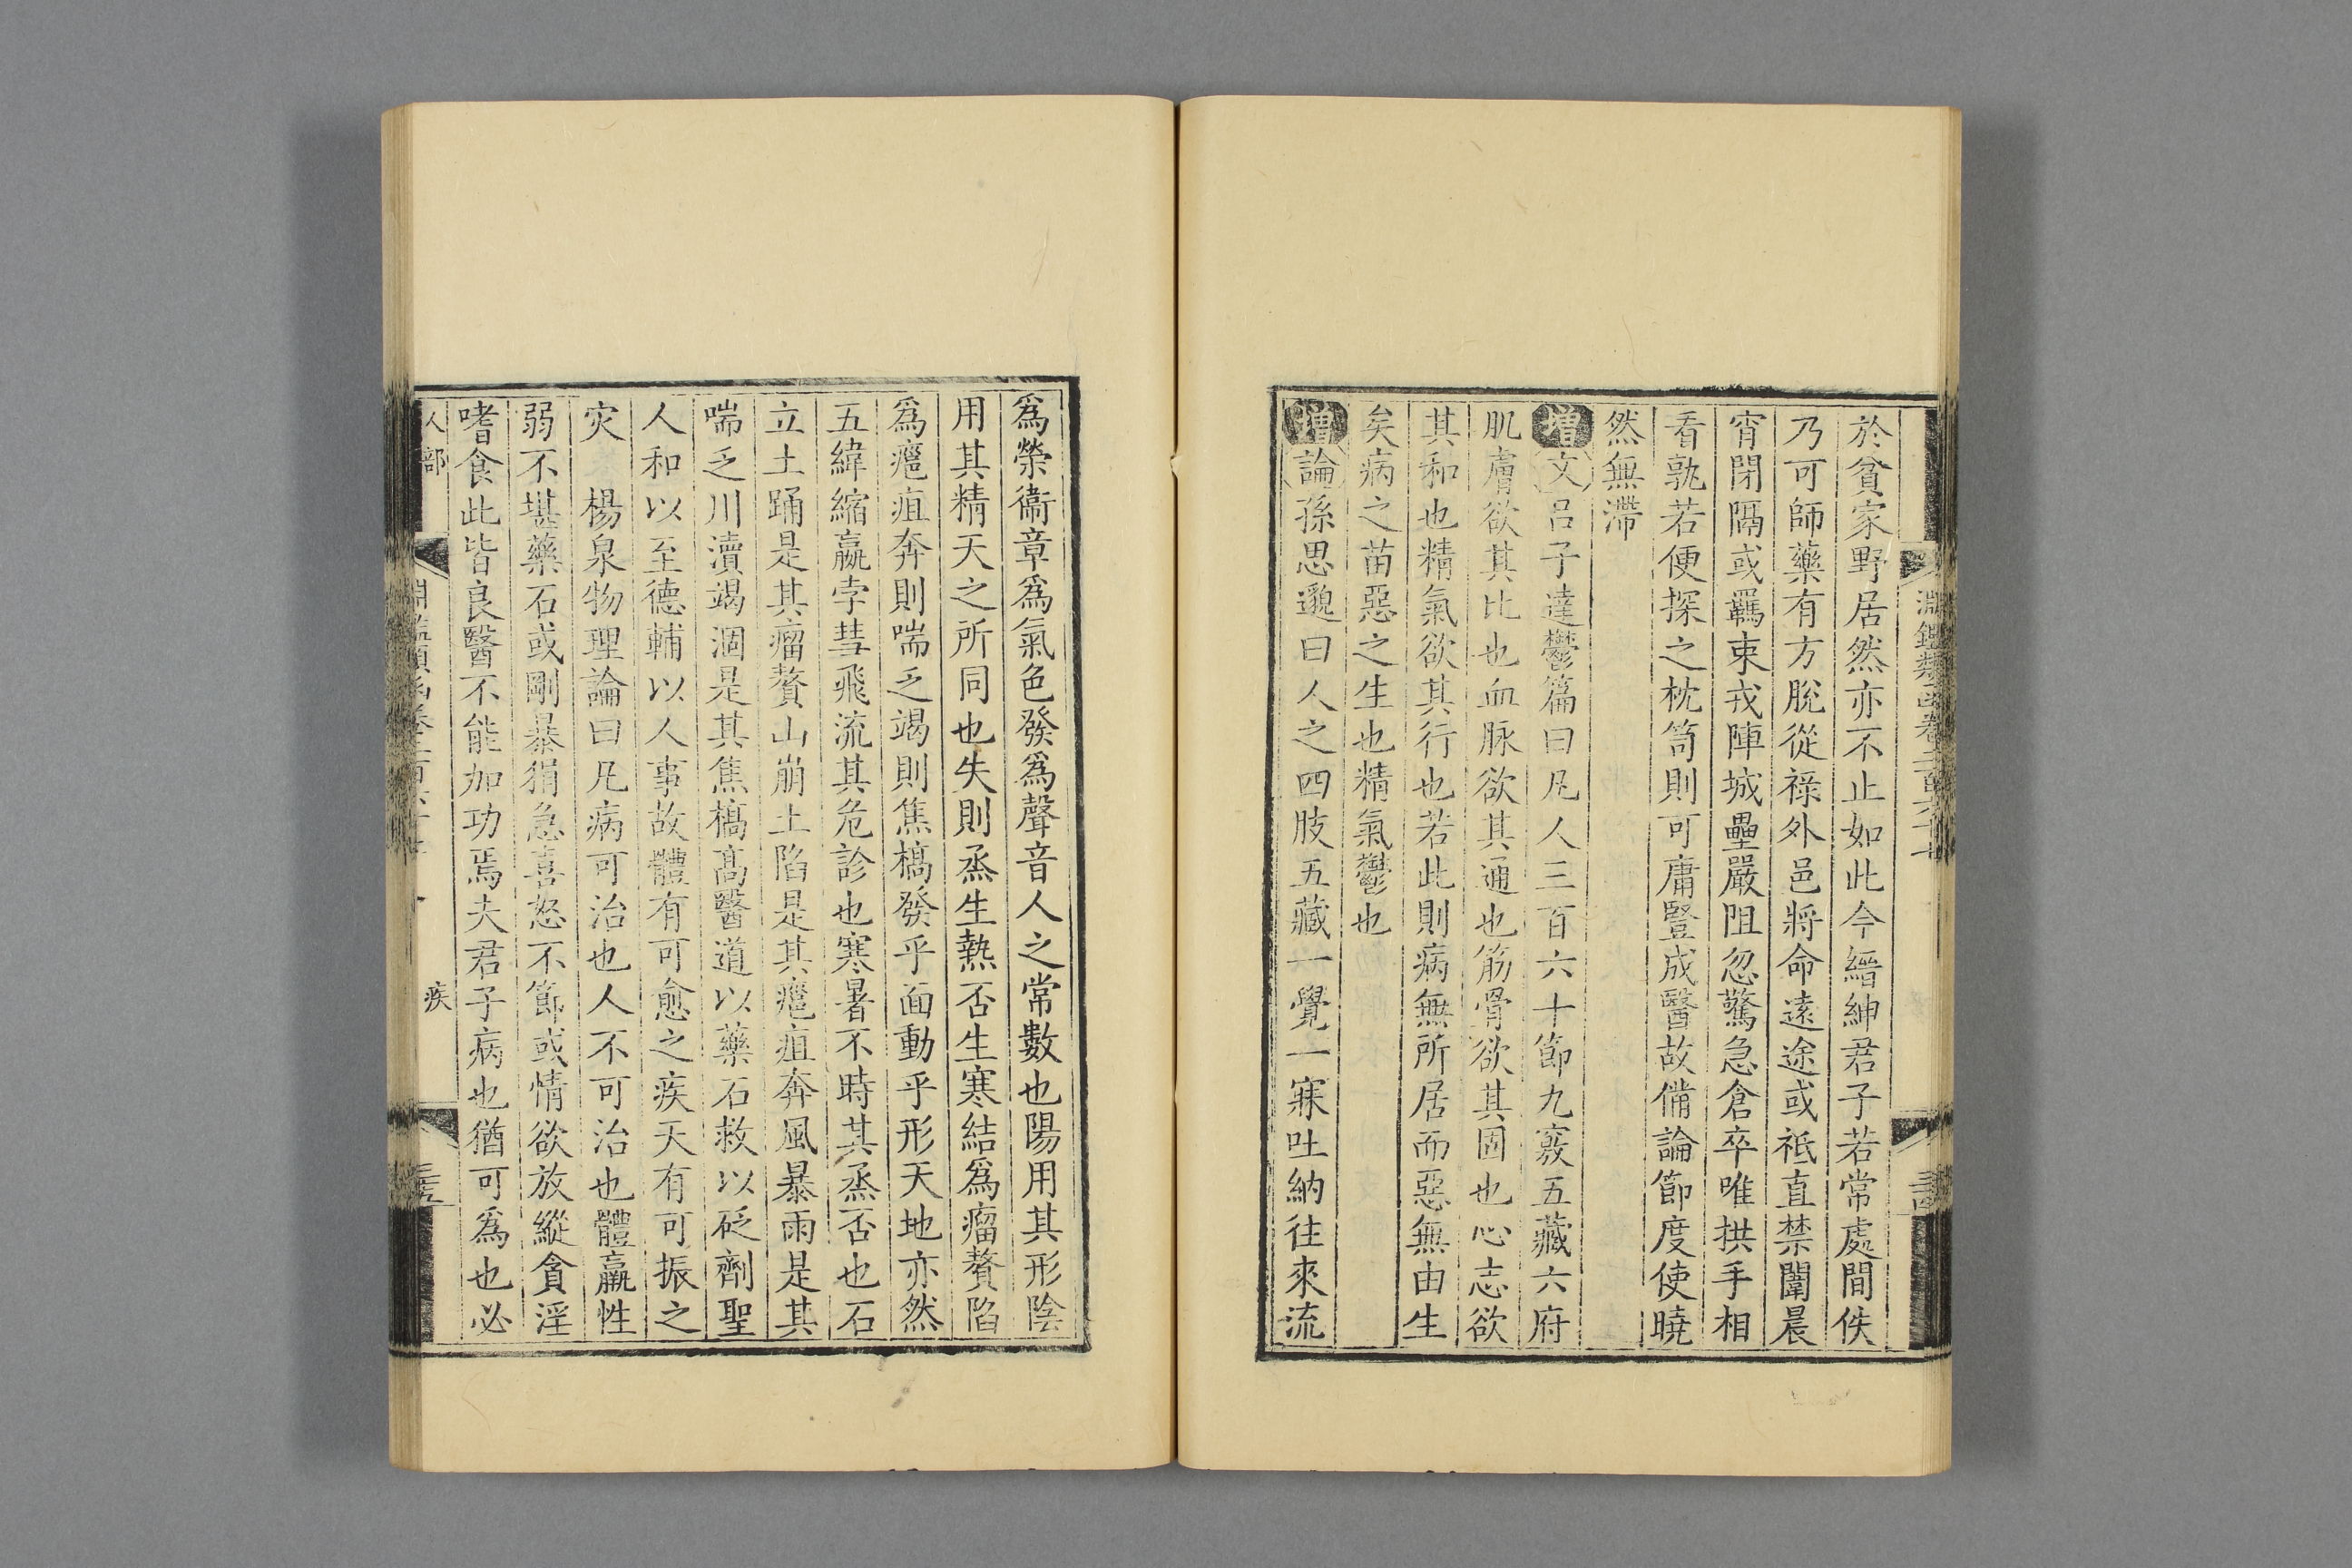 淵鑑類函卷二百六十七
於貧家野居然亦不止如此今縉紳君子若常處閒佚
乃可師藥有方脫從祿外邑將命遠途或祗直禁闈晨
宵閉隔或羈束戎陣城壘嚴阻忽驚急倉卒唯拱手相
看孰若便探之枕笥則可庸豎成醫故備論節度使曉
然無滯
增文呂子達鬱篇曰凡人三百六十節九竅五藏六府
肌膚欲其比也血脉欲其通也筋骨欲其固也心志欲
其和也精氣欲其行也若此則病無所居而惡無由生
矣病之苗惡之生也精氣鬱也
增論孫思邈曰人之四肢五藏一覺一寐吐納往來流
爲榮衞章爲氣色發爲聲音人之常數也陽用其形陰
用其精天之所同也失則烝生熱否生寒結爲瘤贅陷
爲癰疽奔則喘乏竭則焦槁發乎面動乎形天地亦然
五緯縮嬴孛彗飛流其危診也寒暑不時其烝否也石
立土踊是其瘤贅山崩土陷是其癰疽奔風暴雨是其
喘乏川瀆竭涸是其焦槁高醫道以藥石救以砭劑聖
人和以至德輔以人事故體有可愈之疾天有可振之
灾　楊泉物理論曰凡病可治也人不可治也體羸性
弱不堪藥石或剛暴狷急喜怒不節或情欲放縱貪淫
嗜食此皆良醫不能加功焉夫君子病也猶可爲也必
人部
疾